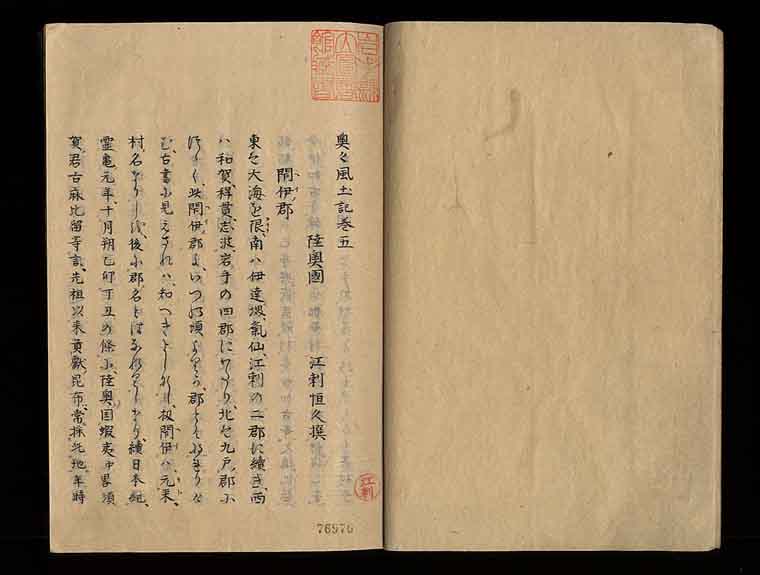 奥々風土記巻五
陸奥國 江刺恒久撰
閇伊郡
東を大海を限、南ハ伊達堺、氣仙、江刺の二郡に續き、西
ハ和賀、稗貫、志波、岩手の四郡にわたり、北を九戸郡に
此閇伊郡よいつの頃より郡と
古書に見えされハ、和へきよしなし、扨閇伊ハ、元来、
村名なりしを後に郡名とはなれりしなり、續日本紀、
靈亀元年、十月朔乙卯丁丑の條に、陸奥国蝦夷中畧須
賀君古麻比留等言、先祖以来貢獻昆布、常採此地、年時
江刺
76976